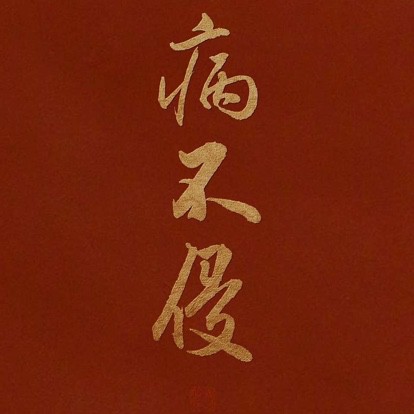 病不侵